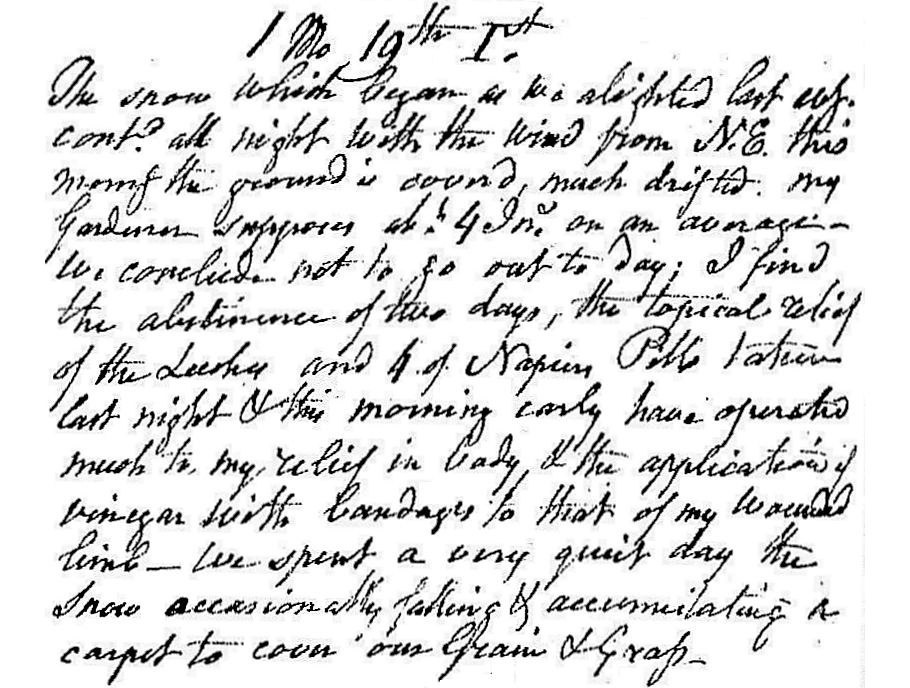 1 Mo 19th 1st
The snow which began as we alighted last eve.
contd. all night with the wind from N.E. this
morng the ground is coverd, much drifted. my
Gardener supposes abt. 4 Ins. on an average –
We conclude not to go out to day; I find
the abstinence of two days, the topical relief
of the Leeches and 4 of Napiers Pills taken
last night & this morning early have operated
much to my relief in body, & the application of
vinegar with bandages to that of my wounded
limb – We spent a very quiet day the
Snow occasionally falling & accumulating a
carpet to cover our Grain & Grass –